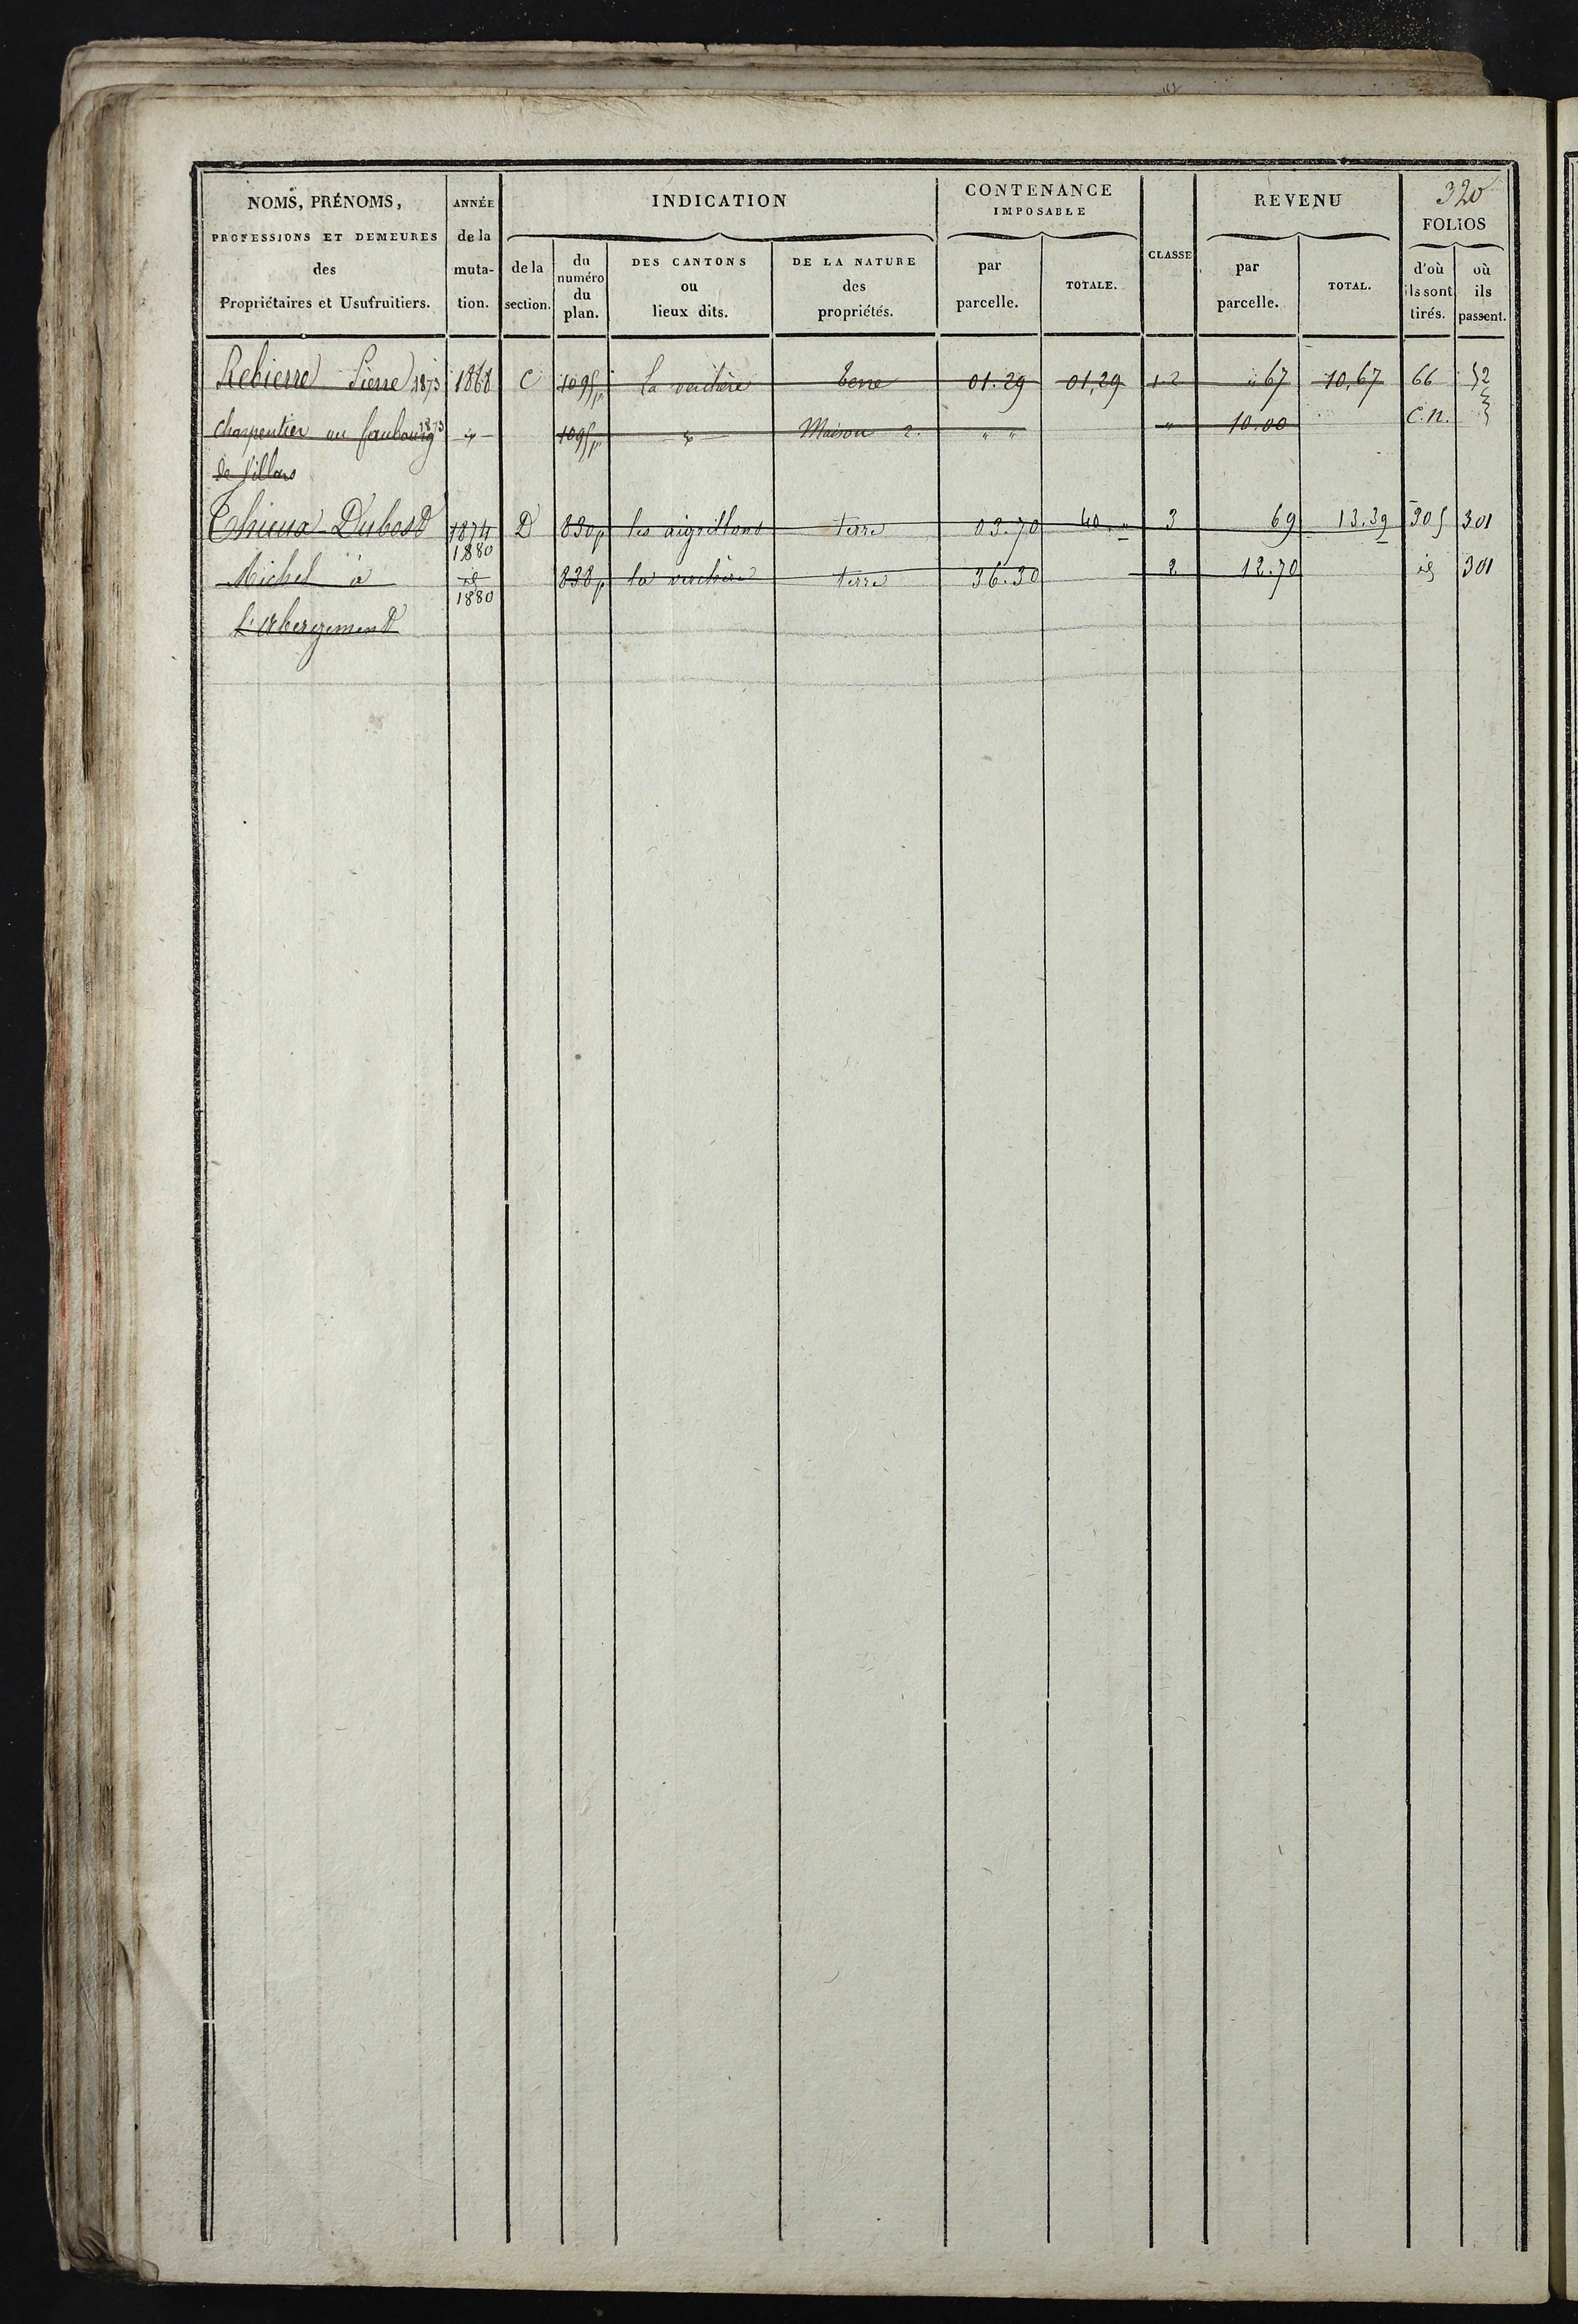 320
NOMS, PRÉNOMS, ANNÉE INDICATION CONTENANCE IMPOSABLE CLASSE REVENU FOLIOS
PROFESSIONS ET DEMEURES de la
des muta- de la du numéro du plan. DES CANTONS ou lieux dits. DE LA NATURE des propriétés. par parcelle. TOTALE. par parcelle. TOTAL. d'où ils sont tirés. où ils passent.
Propriétaires et Usufruitiers. tion. section.
Rebierre Pierre 1873 1868 C 1095p La verchère terre 01.29 01,29 1.2 " 67 10,67 66 52
charpentier au faubourg 1873 1095p Maison 2. " " " 10.00 C.n.
de Villars
Thieux Dubost 1874 D 830p les aigrillons terre 03.70 40." 3 69 13.39 305 301
1880
Michel à id 838p la verchère terre 36.30 2 12.70 id 301
1880
L'Abergement